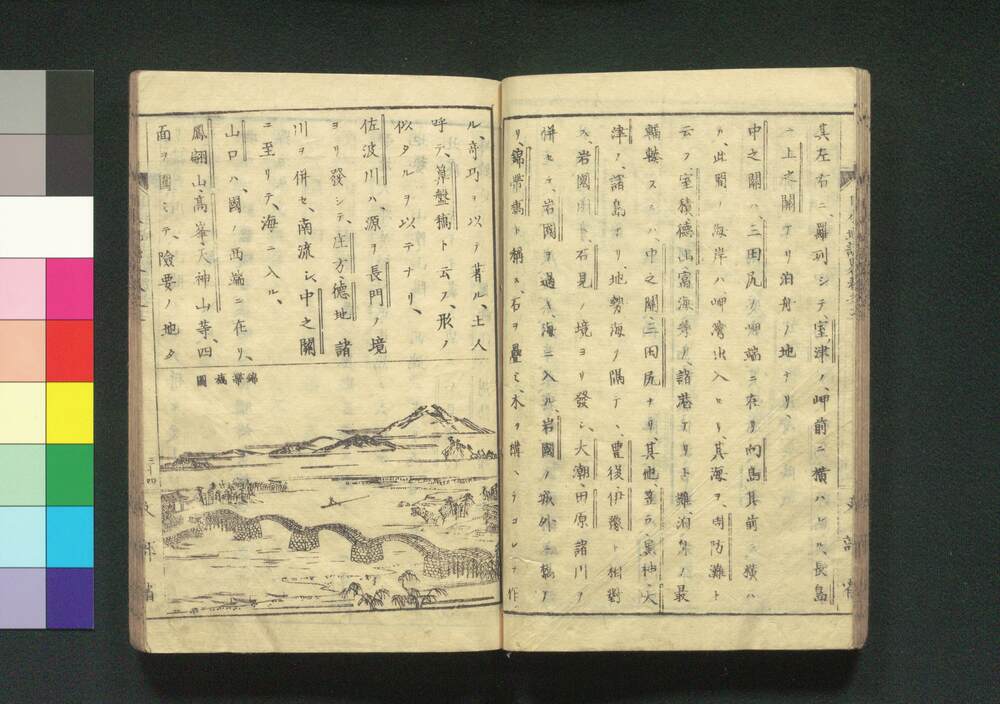 其左右ニ、羅列シテ、室津ノ、岬前ニ横ハルハ、長島
上之關
アリ、泊舟ノ地ナリ、
中之關ハ、三田尻ノ岬端ニ在リ、向島、其前ニ横ハ
ル、此間ノ海岸ハ、岬灣出入セリ、其海ヲ、周防灘ト
云フ、室積、德山、富海等ノ、諸港アリト雖、泊舟ノ最
輻輳スルハ、中之關、三田尻ナリ、其他、笠戸、黒神、大
津ノ、諸島アリ、地勢海ヲ隔テヽ、豊後、伊豫ト、相對
ス、岩國川ハ、石見ノ境ヨリ發シ、大潮田原諸川ヲ
併セテ、岩國ヲ過キ、海ニ入ル、岩國ノ城外ニ橋ア
リ、錦帶橋ト稱ス、石ヲ疊ミ、木ヲ構ヘ、テコレヲ作
ル、奇巧ヲ以テ、著ル、土人
呼テ、算盤橋ト云フ、形ノ
似タルヲ以テナリ、
佐波川ハ、源ヲ長門ノ境
ヨリ發シテ、庄方、德地諸
川ヲ併セ、南流シ、中之關
ニ至リテ、海ニ入ル、
山口ハ、國ノ西端ニ在リ、
鳳翩山、高峯、天神山等、四
面ヲ圍ミテ、險要ノ地タ
錦帶橋圖
三十四
文部省